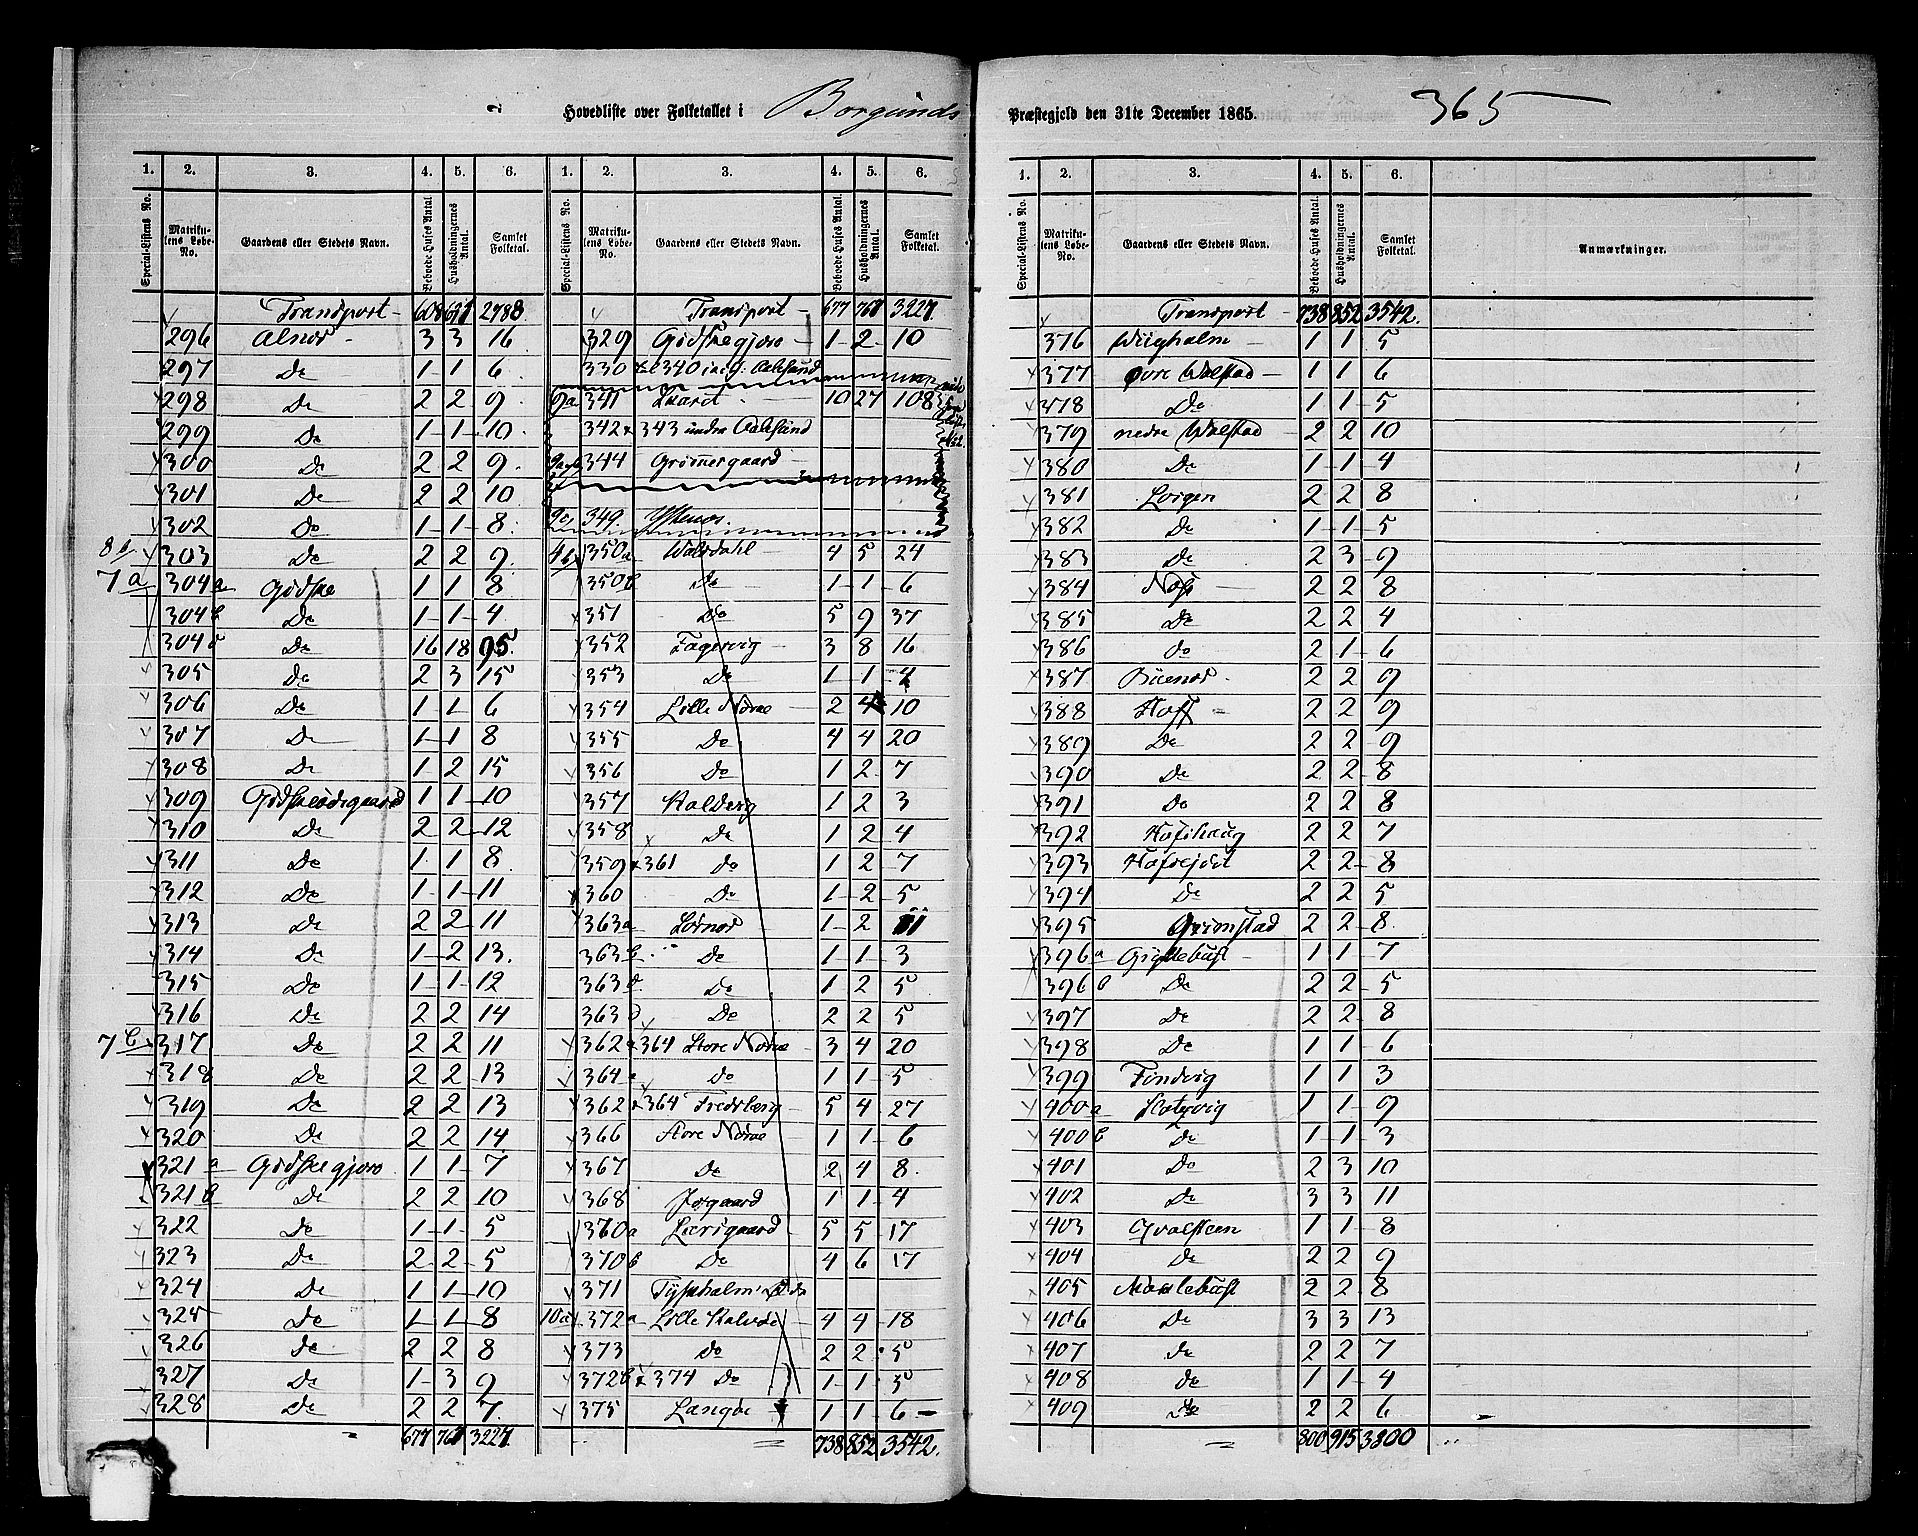 Hovedliste over Folketallet i Borgunds Præstegjeld den 31te December 1865. 365
1. 2. 3. 4. 5. 6. 1. 2. 3. 4. 5. 6.
Special-Listens No. Matrikulens Løbe-No. Gaardens eller Stedets Navn. Beboede Huses Antal. Husholdningernes Antal. Samlet Folketal. Special-Listens No. Matrikulens Løbe-No. Gaardens eller Stedets Navn. Beboede Huses Antal. Husholdningernes Antal. Samlet Folketal.
Transport 608 691 2988
296 Alnes 3 3 16
297 Do 1 1 6
298 Do 2 2 9
299 Do 1 1 10
300 Do 2 2 9
301 Do 2 2 10
302 Do 1 1 8
8b 303 Do 2 2 9
7a 304a Godske 1 1 8
304b Do 1 1 4
304c Do 16 18 95
305 Do 2 3 15
306 Do 1 1 6
307 Do 1 1 8
308 Do 1 2 15
309 Godskeødegaard 1 1 10
310 Do 2 2 12
311 Do 1 1 8
312 Do 1 1 11
313 Do 2 2 11
314 Do 1 2 13
315 Do 1 1 12
316 Do 2 2 14
7b 317 Do 2 2 11
318 Do 2 2 13
319 Do 2 2 13
320 Do 2 2 14
321a Godskegjøro 1 1 7
321b Do 2 2 10
322 Do 1 1 5
323 Do 2 2 5
324 Do 1 1 10
325 Do 1 1 8
326 Do 2 2 8
327 Do 1 3 9
328 Do 2 2 7
= 677 761 3227
Transport 677 761 3227
329 Godskegjøro 1 2 10
330 til 340 incl. Aalesund
9a 341 Slaret 10 27 108
342 & 343 under Aalesund
344 Grimmergaard
9c 349. Ystenæs.
4b 350a Walsdahl 4 5 24
350b Do 1 1 6
351 Do 5 9 37
352 Fagervig 3 8 16
353 Do 1 1 4
354 Lille Nørve 2 4 10
355 Do 4 4 20
356 Do 1 2 7
357 Stalberg 1 2 3
358 Do 1 2 4
359 & 361 Do 1 2 7
360 Do 1 2 5
363a Lørnes 1 2 11
363b Do 1 1 3
363c Do 1 2 5
363d Do 2 2 5
362 & 364 Store Nørve 3 4 20
364 Do 1 1 5
362 & 364 Fredsberg 5 4 27
366 Store Nørve 1 1 6
367 Do 2 4 8
368 Josgaard 1 1 4
370a Lærsgaard 5 5 17
370b Do 4 6 17
371 Tyskholm Øde
10a 372a Lille Kalvø 4 4 18
373 Do 2 2 5
372b & 374 Do 1 1 5
375 Langøe 1 1 6
= 738 852 3542
1. 2. 3. 4. 5. 6.
Special-Listens No. Matrikulens Løbe-No. Gaardens eller Stedets Navn. Beboede Huses Antal. Husholdningernes Antal. Samlet Folketal. Anmærkninger.
Transport 738 852 3542
376 Wiigholm 1 1 5
377 øvre Walstad 1 1 6
378 Do 1 1 5
379 nedre Walstad 2 2 10
380 Do 1 1 4
381 Lorgen 2 2 8
382 Do 1 1 5
383 Do 2 3 9
384 Næs 2 2 8
385 Do 2 2 4
386 Do 2 1 6
387 Buenes 2 2 9
388 Hoff 2 2 9
389 Do 2 2 9
390 Do 2 2 8
391 Do 2 2 8
392 Hofshaug 2 2 7
393 Hofsejdet 2 2 8
394 Do 2 2 5
395 Grimstad 2 2 8
396a Gyllebust 1 1 7
396b Do 2 2 5
397 Do 2 2 8
398 Do 1 1 6
399 Findvig 1 1 3
400a Slotsvig 1 1 9
400b Do 1 1 3
401 Do 2 3 10
402 Do 3 3 11
403 Qvalsteen 1 1 8
404 Do 2 2 9
405 Maslebust 2 2 8
406 Do 3 3 13
407 Do 2 2 7
408 Do 1 1 4
409 Do 2 2 6
= 800 915 3800